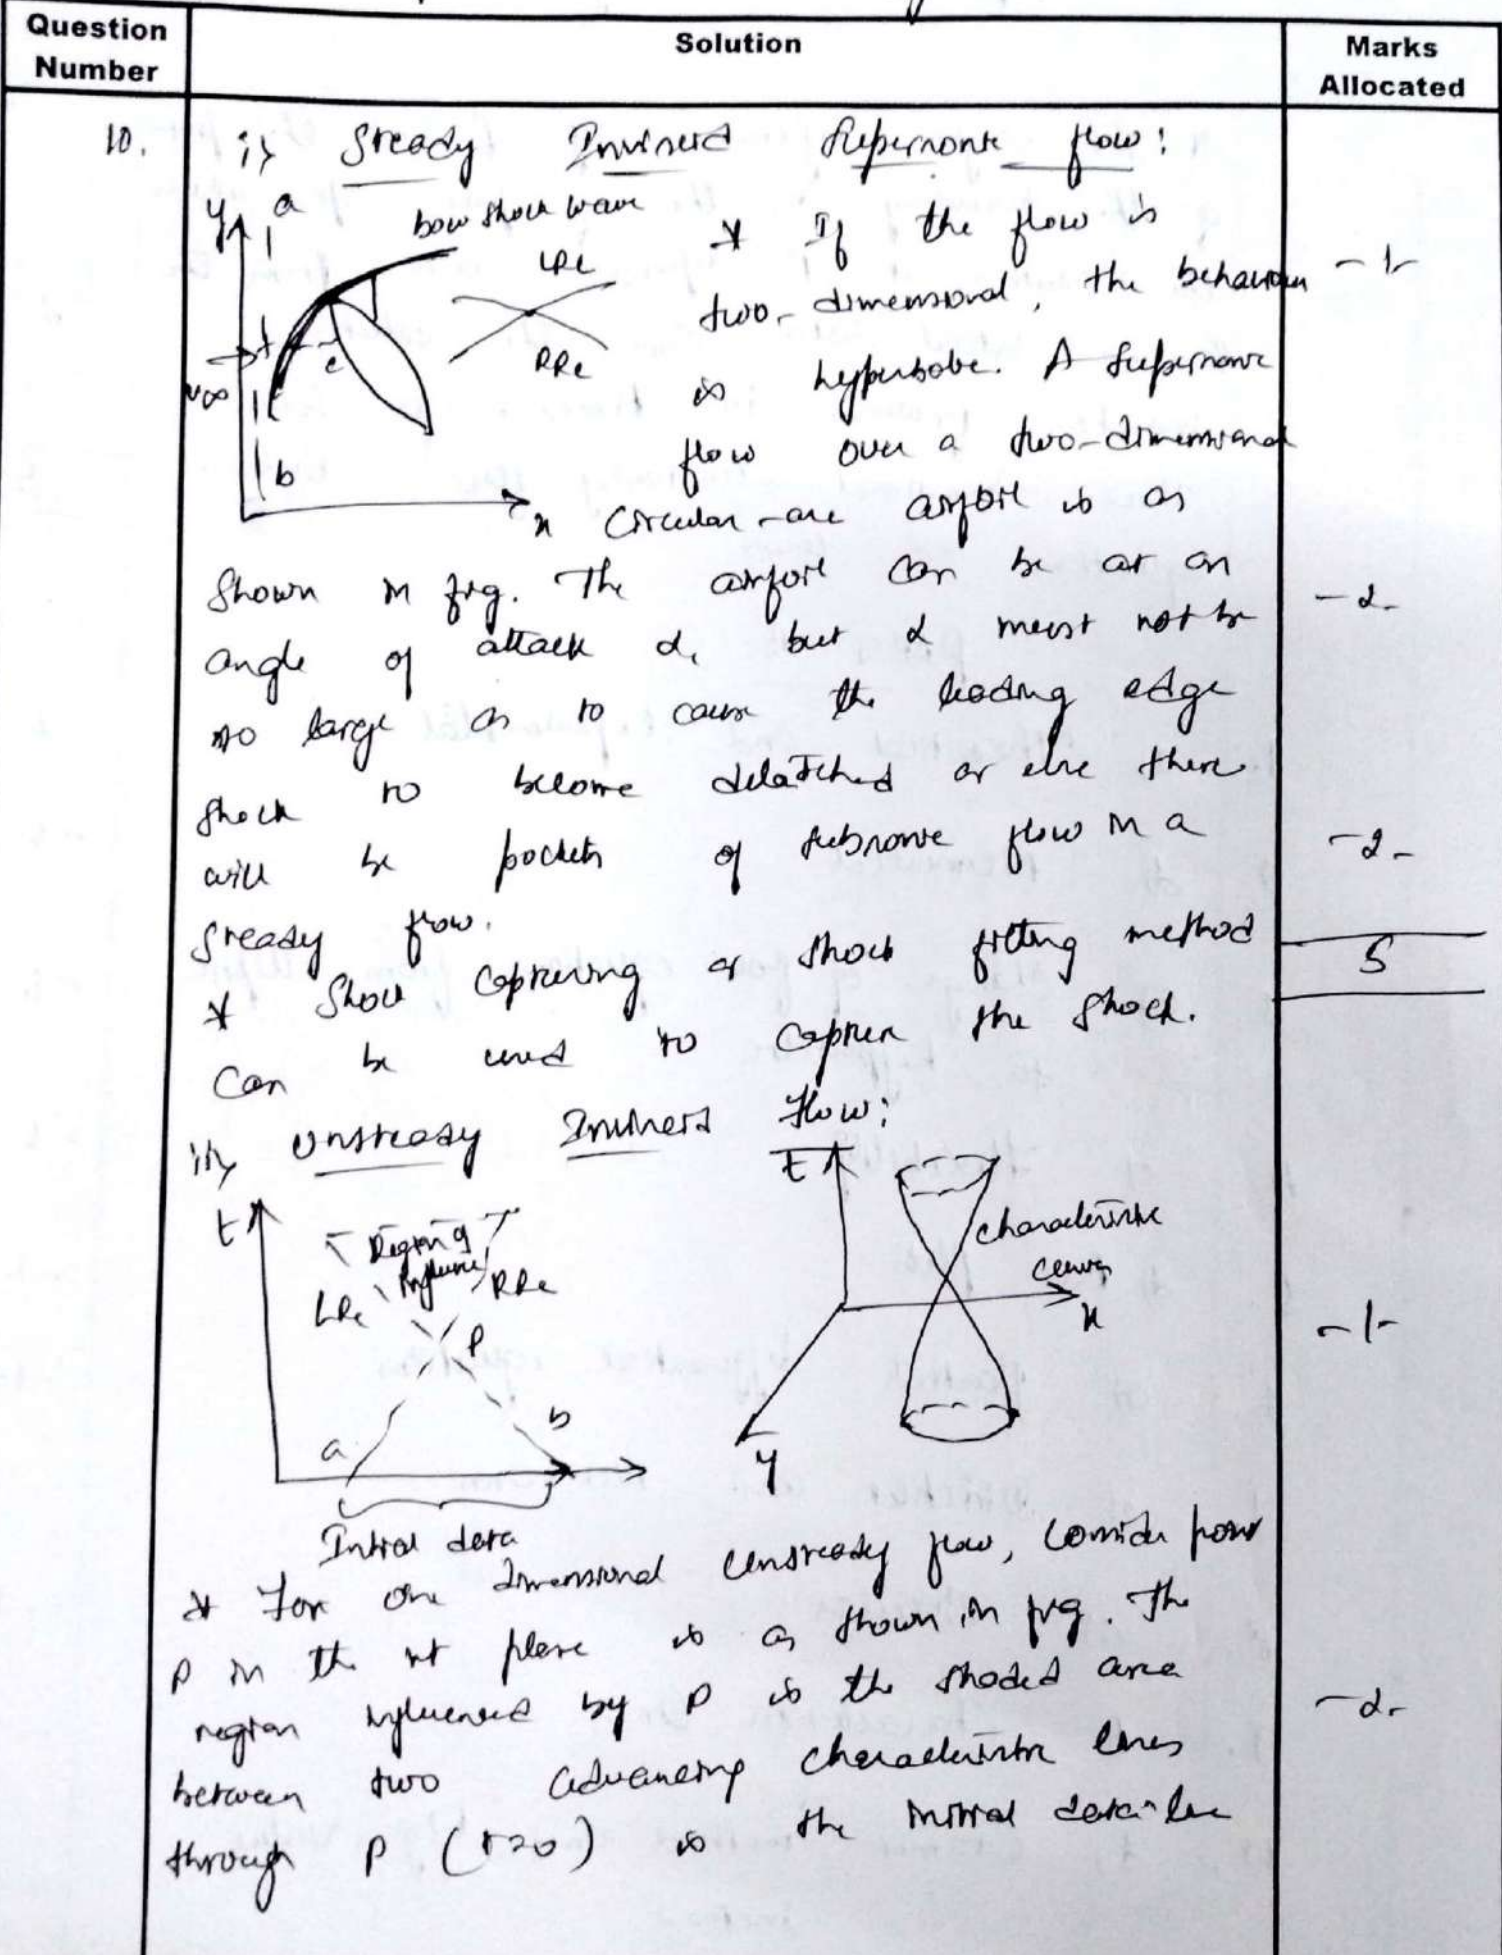 Question Number
Solution
Marks Allocated
10. i) Steady Inviscid Supersonic flow:
y a
bow shock wave
LRC
RRC
c
V∞
b
x
* If the flow is
two-dimensional, the behaviour
is hyperbolic. A supersonic
flow over a two-dimensional
circular-arc airfoil is as
shown in fig. The airfoil can be at an
angle of attack α, but α must not be
so large as to cause the leading edge
shock to become detached or else there
will be pockets of subsonic flow in a
steady flow.
* Shock capturing or shock fitting method
can be used to capture the shock.
-1-
-2-
-2-
5
ii) Unsteady Inviscid Flow:
t
Region of
Influence
LRC
RRC
P
a
b
Initial data
t
characteristic
curves
x
y
* For one dimensional unsteady flow, consider point
P in the xt plane is as shown in fig. The
region influenced by P is the shaded area
between two advancing characteristic lines
through P (t>0) is the initial data line
-1-
-2-